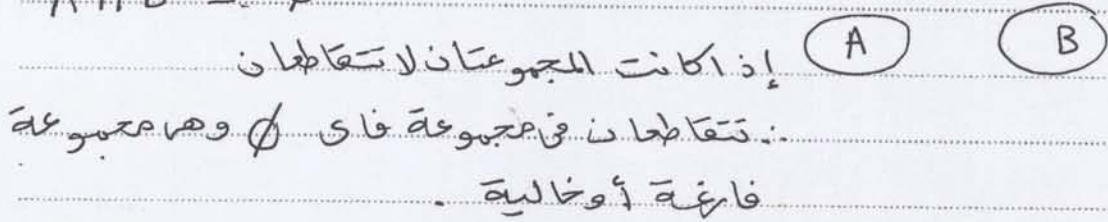 إذا كانت المجموعتان لا تتقاطعان A B
∴ تتقاطعان فى مجموعة فاى ∅ وهى مجموعة
فارغة أو خالية .